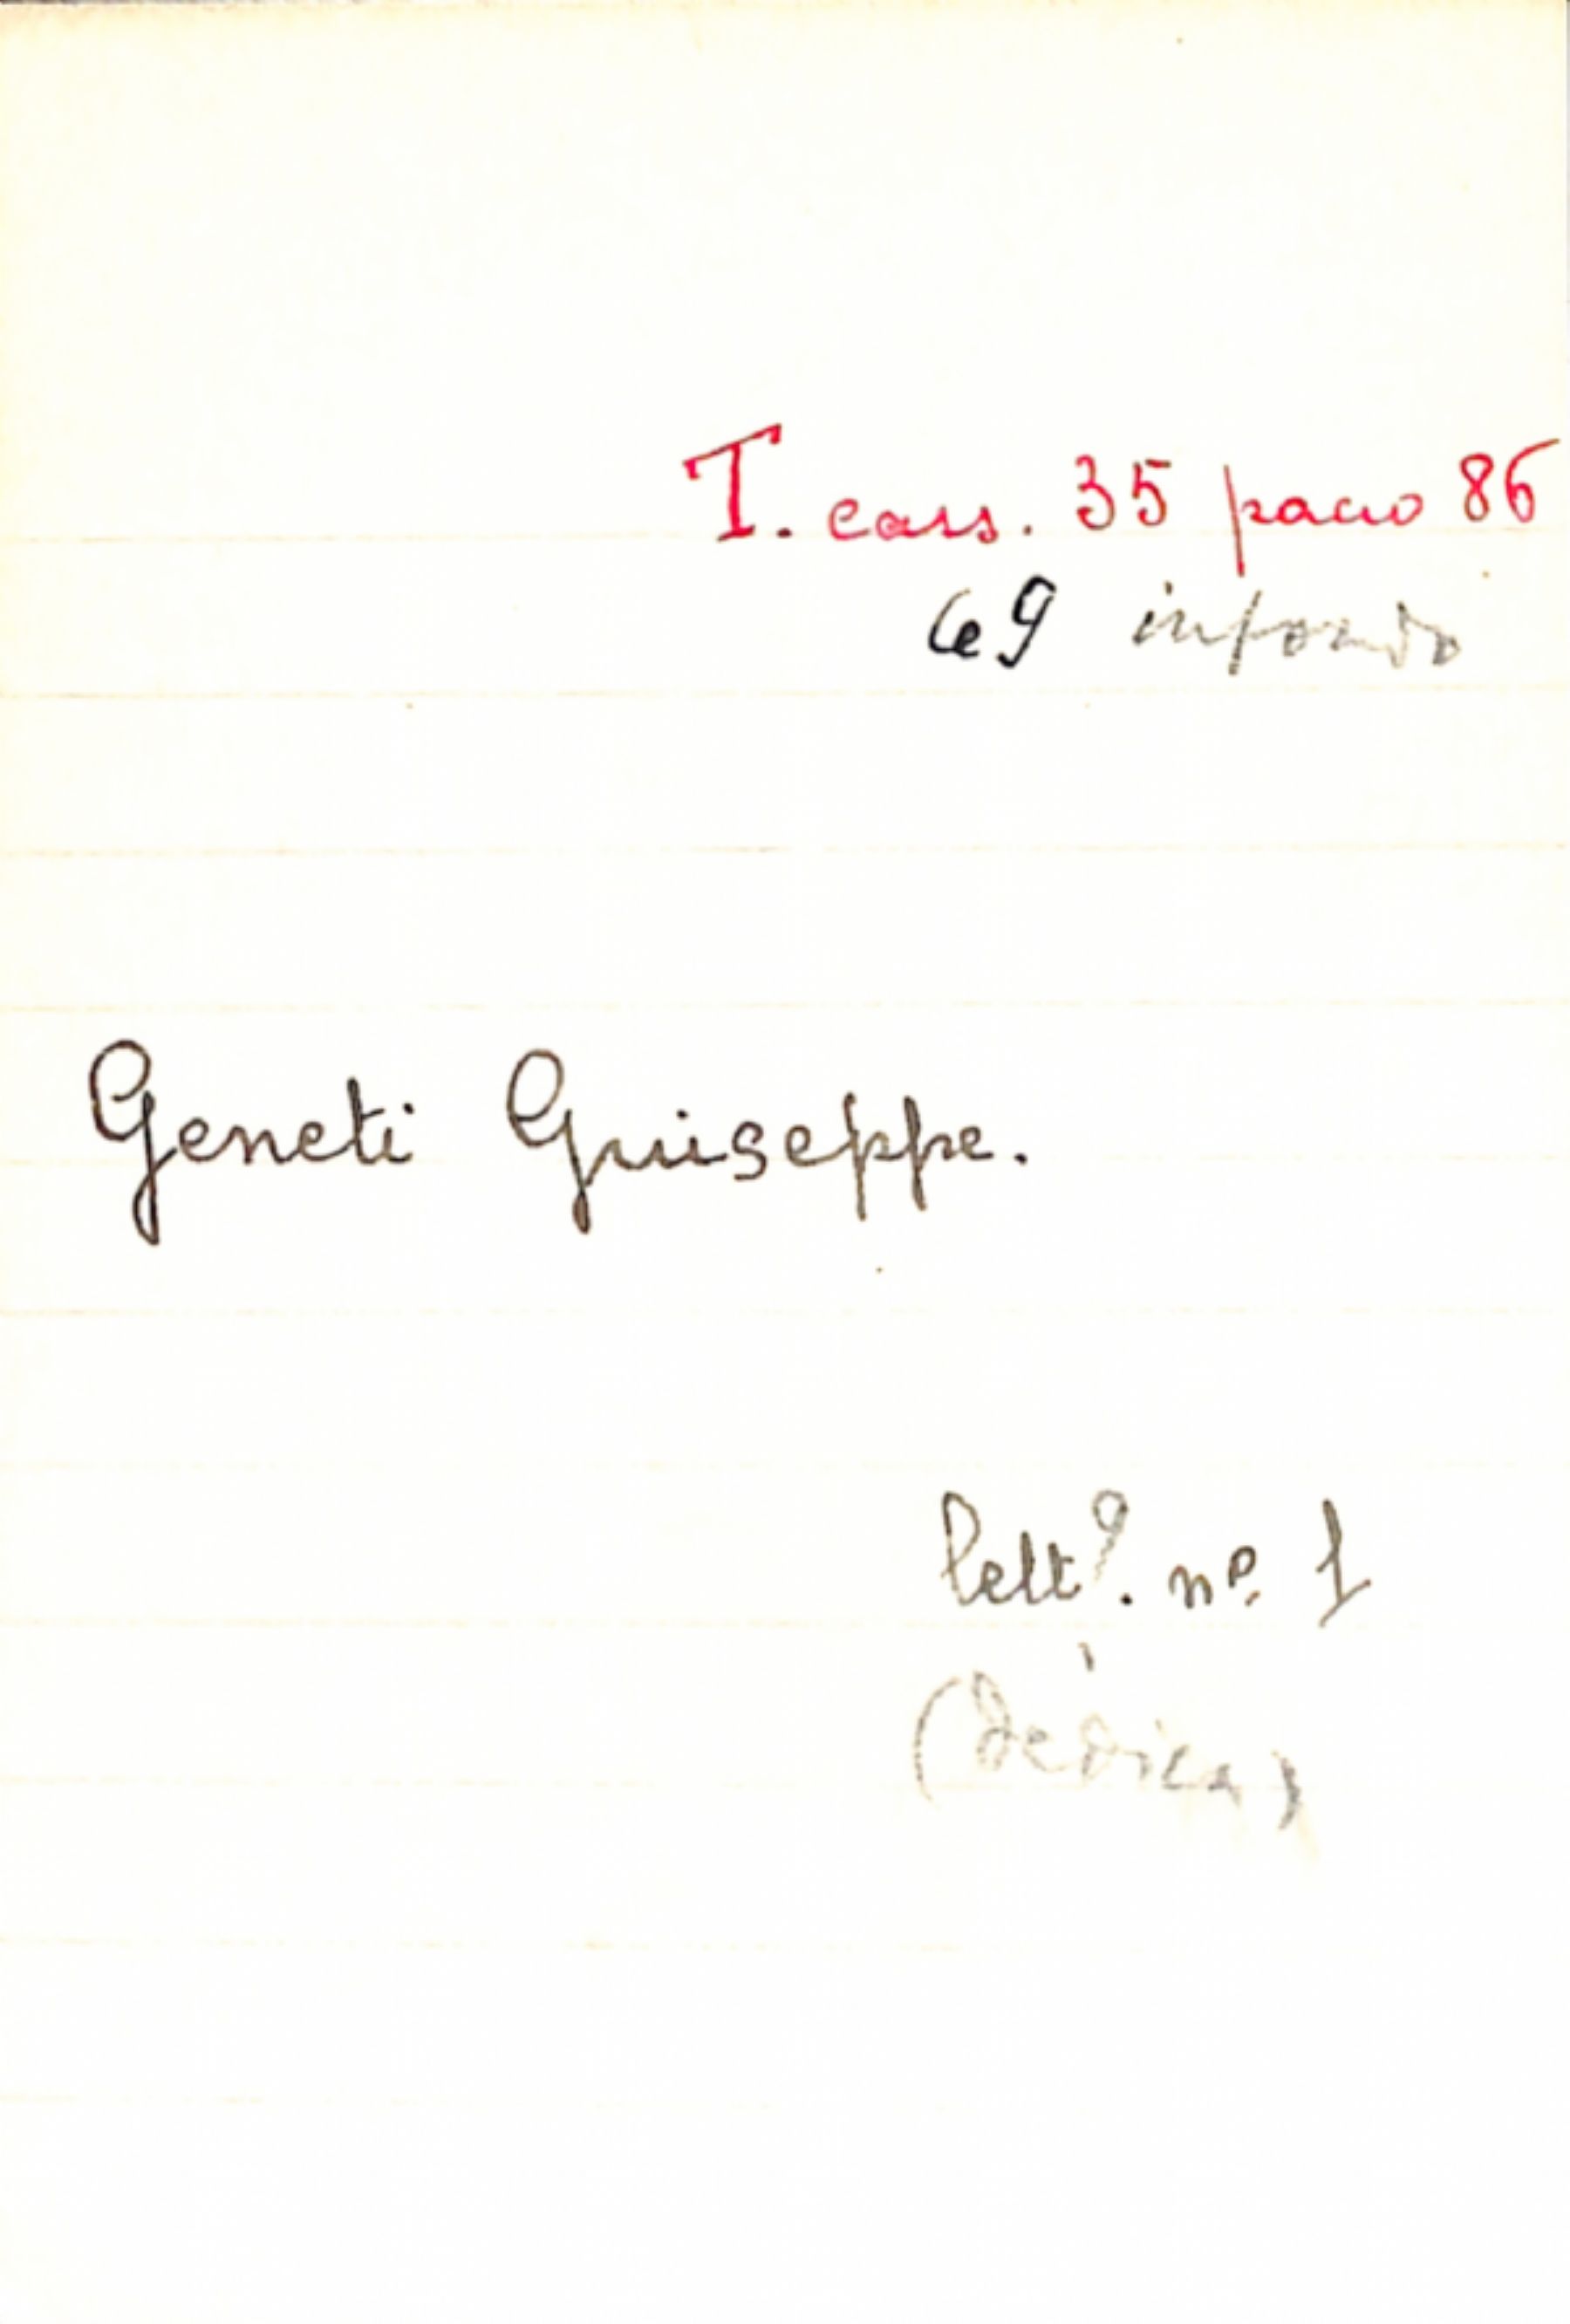 T. cass. 35 pacco 86
69 infondo
Geneti Giuseppe.
lett? . nº 1
(dedica)